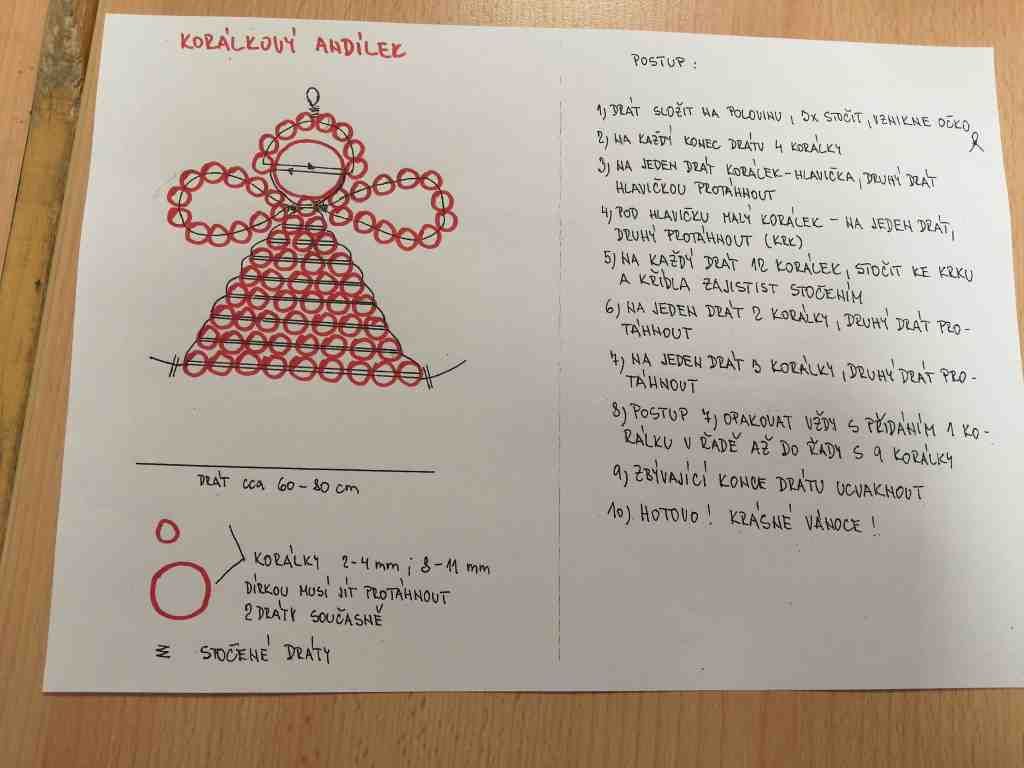 KORÁLKOVÝ ANDÍLEK
DRÁT cca 60-80 cm
KORÁLKY 2-4 mm ; 8-11 mm
DÍRKOU MUSÍ JÍT PROTÁHNOUT
2 DRÁTY SOUČASNĚ
STOČENÉ DRÁTY
POSTUP :
1) DRÁT SLOŽIT NA POLOVINU, 3x STOČIT, VZNIKNE OČKO
2) NA KAŽDÝ KONEC DRÁTU 4 KORÁLKY
3) NA JEDEN DRÁT KORÁLEK-HLAVIČKA, DRUHÝ DRÁT
HLAVIČKOU PROTÁHNOUT
4) POD HLAVIČKU MALÝ KORÁLEK - NA JEDEN DRÁT,
DRUHÝ PROTÁHNOUT (KRK)
5) NA KAŽDÝ DRÁT 12 KORÁLEK, STOČIT KE KRKU
A KŘÍDLA ZAJISTIST STOČENÍM
6) NA JEDEN DRÁT 2 KORÁLKY, DRUHÝ DRÁT PRO-
TÁHNOUT
7) NA JEDEN DRÁT 3 KORÁLKY, DRUHÝ DRÁT PRO-
TÁHNOUT
8) POSTUP 7) OPAKOVAT VŽDY S PŘIDÁNÍM 1 KO-
RÁLKU V ŘADĚ AŽ DO ŘADY S 9 KORÁLKY
9) ZBÝVAJÍCÍ KONCE DRÁTU UCVAKNOUT
10) HOTOVO! KRÁSNÉ VÁNOCE!